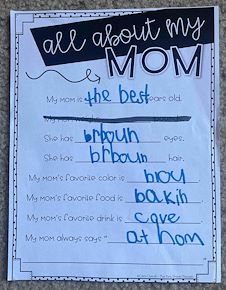 all about my
MOM
My mom is the best ears old.
She has brboun eyes.
She has brboum hair.
My mom's favorite color is blou
My mom's favorite food is bakin
My mom's favorite drink is cove
My mom always says " at hom
"